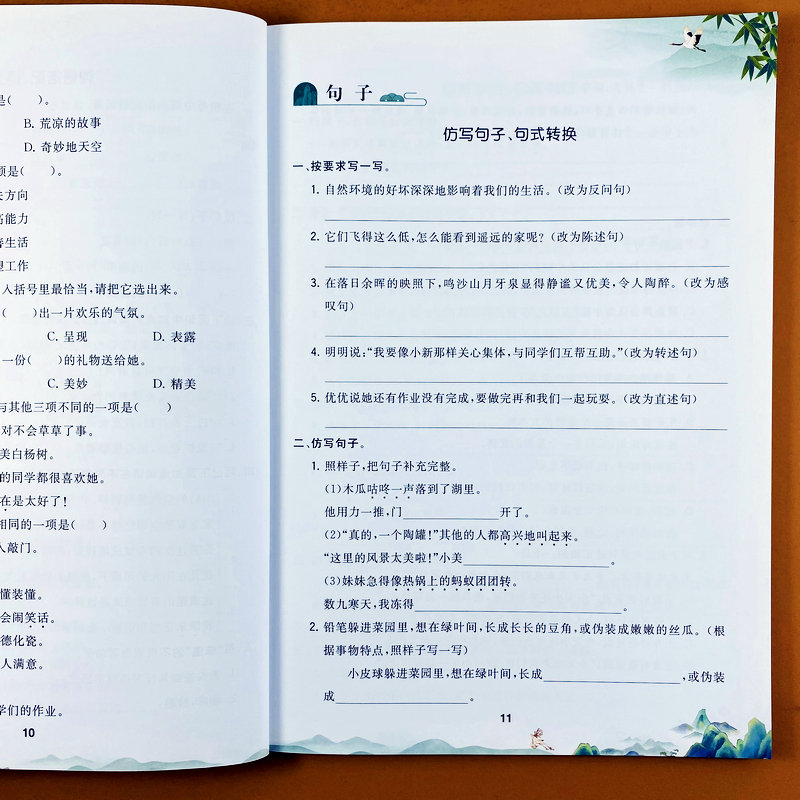 是(　　)。
B. 荒凉的故事
D. 奇妙地天空
项是(　　)。
方向
能力
生活
工作
入括号里最恰当,请把它选出来。
(　　)出一片欢乐的气氛。
C. 呈现　D. 表露
一份(　　)的礼物送给她。
C. 美妙　D. 精美
与其他三项不同的一项是(　　)
对不会草草了事。
美白杨树。
的同学都很喜欢她。
在是太好了!
相同的一项是(　　)
人敲门。
懂装懂。
会闹笑话。
德化瓷。
人满意。
学们的作业。
10
句子
仿写句子、句式转换
一、按要求写一写。
1. 自然环境的好坏深深地影响着我们的生活。(改为反问句)
2. 它们飞得这么低,怎么能看到遥远的家呢?(改为陈述句)
3. 在落日余晖的映照下,鸣沙山月牙泉显得静谧又优美,令人陶醉。(改为感
叹句)
4. 明明说:“我要像小新那样关心集体,与同学们互帮互助。”(改为转述句)
5. 优优说她还有作业没有完成,要做完再和我们一起玩耍。(改为直述句)
二、仿写句子。
1. 照样子,把句子补充完整。
(1)木瓜咕咚一声落到了湖里。
他用力一推,门______________开了。
(2)“真的,一个陶罐!”其他的人都高兴地叫起来。
“这里的风景太美啦!”小美______________________。
(3)妹妹急得像热锅上的蚂蚁团团转。
数九寒天,我冻得______________________________。
2. 铅笔躲进菜园里,想在绿叶间,长成长长的豆角,或伪装成嫩嫩的丝瓜。(根
据事物特点,照样子写一写)
小皮球躲进菜园里,想在绿叶间,长成____________________,或伪装
成____________________。
11